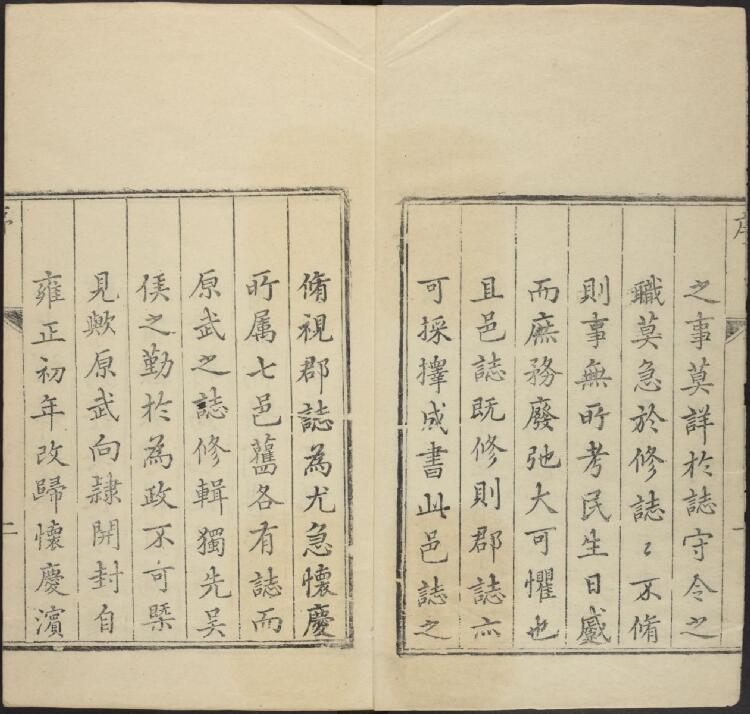 之事莫詳於誌守令之
職莫急於修誌〻不脩
則事無所考民生日蹙
而庶務廢弛大可懼也
且邑誌既修則郡誌亦
可採擇成書此邑誌之
脩視郡誌為尤急懷慶
所属七邑舊各有誌而
原武之誌修輯獨先吴
侯之勤於為政不可槩
見歟原武向隷開封自
雍正初年改歸懷慶濵
二